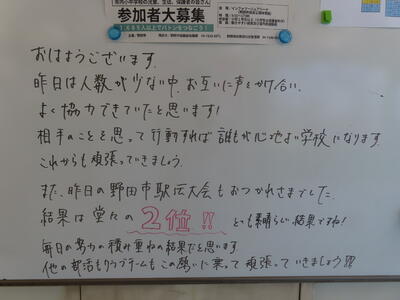 参加者大募集
おはようございます。
昨日は人数が少ない中、お互いに声をかけ合い、
よく協力できていたと思います!
相手のことを思って行動すれば誰もが心地よい学校になります。
これからも頑張っていきましょう。
また、昨日の野田市駅伝大会もおつかれさまでした。
結果は堂々の2位!! とても素晴らしい結果ですね!
毎日の努力の積み重ねの結果だと思います
他の部活もクラブチームもこの勢いに乗って頑張っていきましょう!!